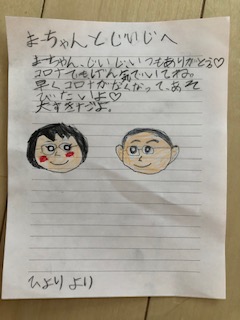 まーちゃんとじいじへ
まーちゃん、じいじ、いつもありがとう♡
コロナでもげん気でいてね。
早くコロナがなくなって、あそ
びたいよ♡
大すきだよ。
ひよりより